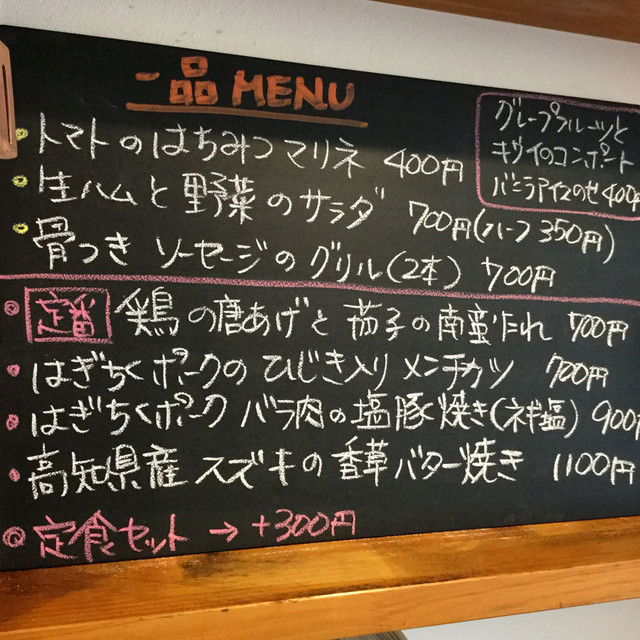 一品MENU
グレープフルーツと
キウイのコンポート
バニラアイスのせ 400円
トマトのはちみつマリネ 400円
生ハムと野菜のサラダ 700円(ハーフ350円)
骨つきソーセージのグリル(2本) 700円
定番 鶏の唐あげと茄子の南蛮だれ 700円
はぎちくポークのひじき入りメンチカツ 700円
はぎちくポークバラ肉の塩豚焼き(ネギ塩) 900円
高知県産スズキの香草バター焼き 1100円
定食セット → +300円